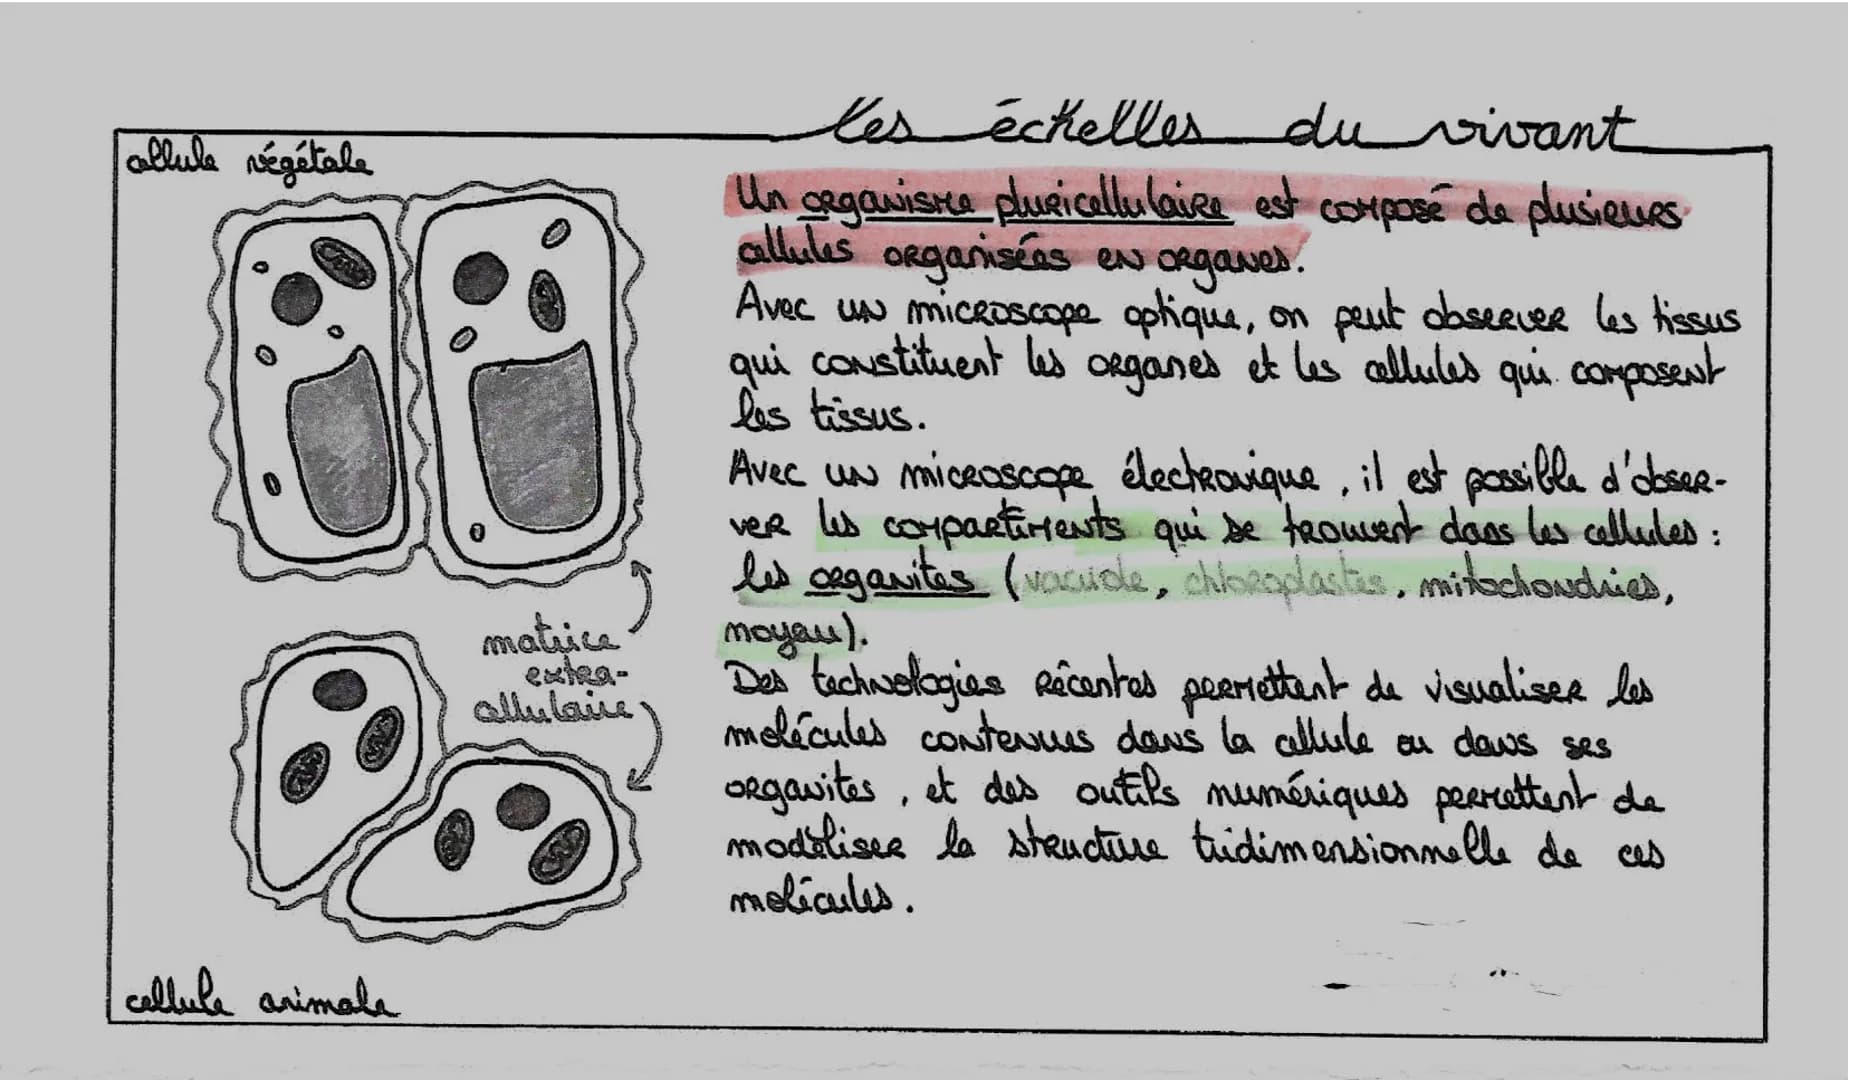 les échelles du vivant
cellule végétale
Un organisme pluricellulaire est composé de plusieurs
cellules organisées en organes.
Avec un microscope optique, on peut observer les tissus
qui constituent les organes et les cellules qui composent
les tissus.
Avec un microscope électronique, il est possible d'obser-
ver les compartiments qui se trouvent dans les cellules :
les organites (vacuole, chloroplastes, mitochondries,
noyau).
Des technologies récentes permettent de visualiser les
molécules contenues dans la cellule ou dans ses
organites, et des outils numériques permettent de
modéliser la structure tridimensionnelle de ces
molécules.
matrice
extra-
cellulaire
cellule animale